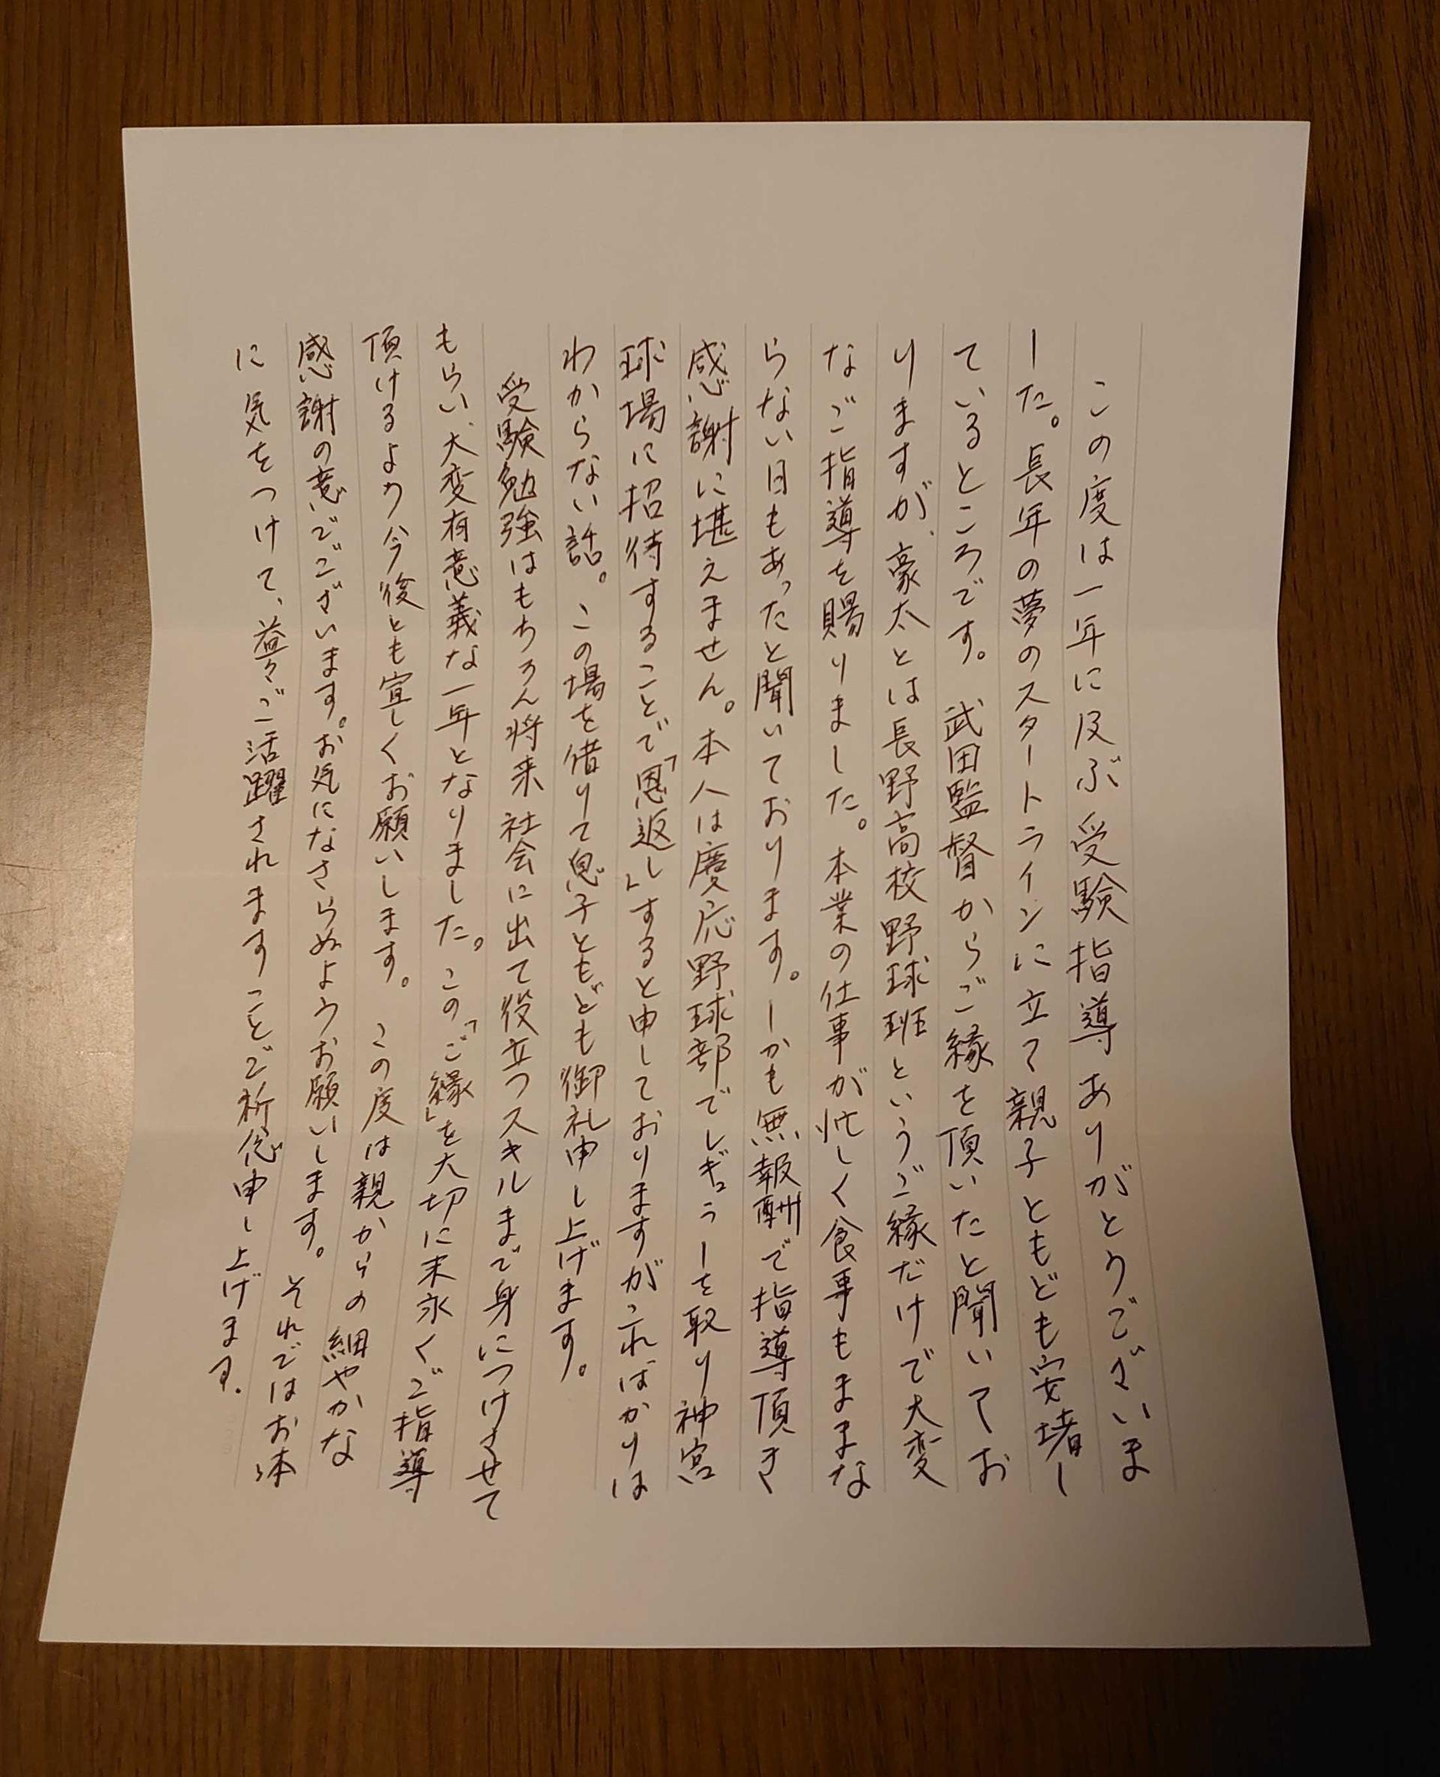 この度は一年に及ぶ受験指導ありがとうございま
した。長年の夢のスタートラインに立て親子ともども安堵し
ているところです。武田監督からご縁を頂いたと聞いてお
りますが、豪太とは長野高校野球班というご縁だけで大変
なご指導を賜りました。本業の仕事が忙しく食事もままな
らない日もあったと聞いております。しかも無報酬で指導頂き
感謝に堪えません。本人は慶応野球部でレギュラーを取り神宮
球場に招待することで「恩返し」すると申しておりますがこればかりは
わからない話。この場を借りて息子ともども御礼申し上げます。
受験勉強はもちろん将来社会に出て役立つスキルまで身につけさせて
もらい、大変有意義な一年となりました。この「ご縁」を大切に末永くご指導
頂けるよう今後とも宜しくお願いします。この度は親からの細やかな
感謝の意でございます。お気になさらぬようお願いします。それではお体
に気をつけて、益々ご活躍されますことご祈念申し上げます.